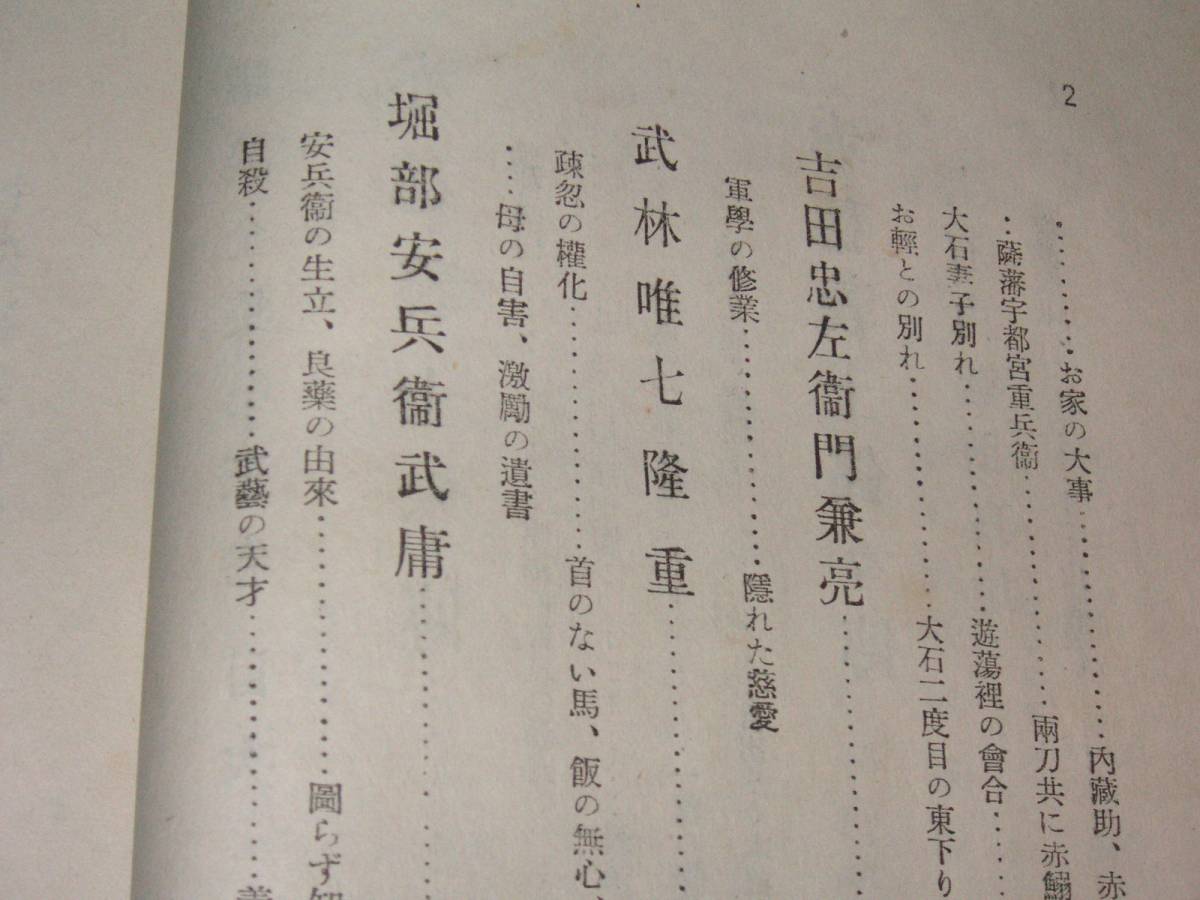 2
‥‥‥‥‥お家の大事‥‥‥‥‥內藏助、赤
‥薩藩宇都宮重兵衞‥‥‥‥‥兩刀共に赤鰯
大石妻子別れ‥‥‥‥‥遊蕩裡の會合‥‥
お輕との別れ‥‥‥‥‥大石二度目の東下り
吉田忠左衞門兼亮‥‥‥‥‥
軍學の修業‥‥‥‥‥隱れた慈愛
武林唯七隆重‥‥‥‥‥
疎忽の權化‥‥‥‥‥首のない馬、飯の無心、
‥‥母の自害、激勵の遺書
堀部安兵衞武庸‥‥‥‥‥
安兵衞の生立、良藥の由來‥‥‥‥‥圖らず知
自殺‥‥‥‥‥武藝の天才‥‥‥‥‥